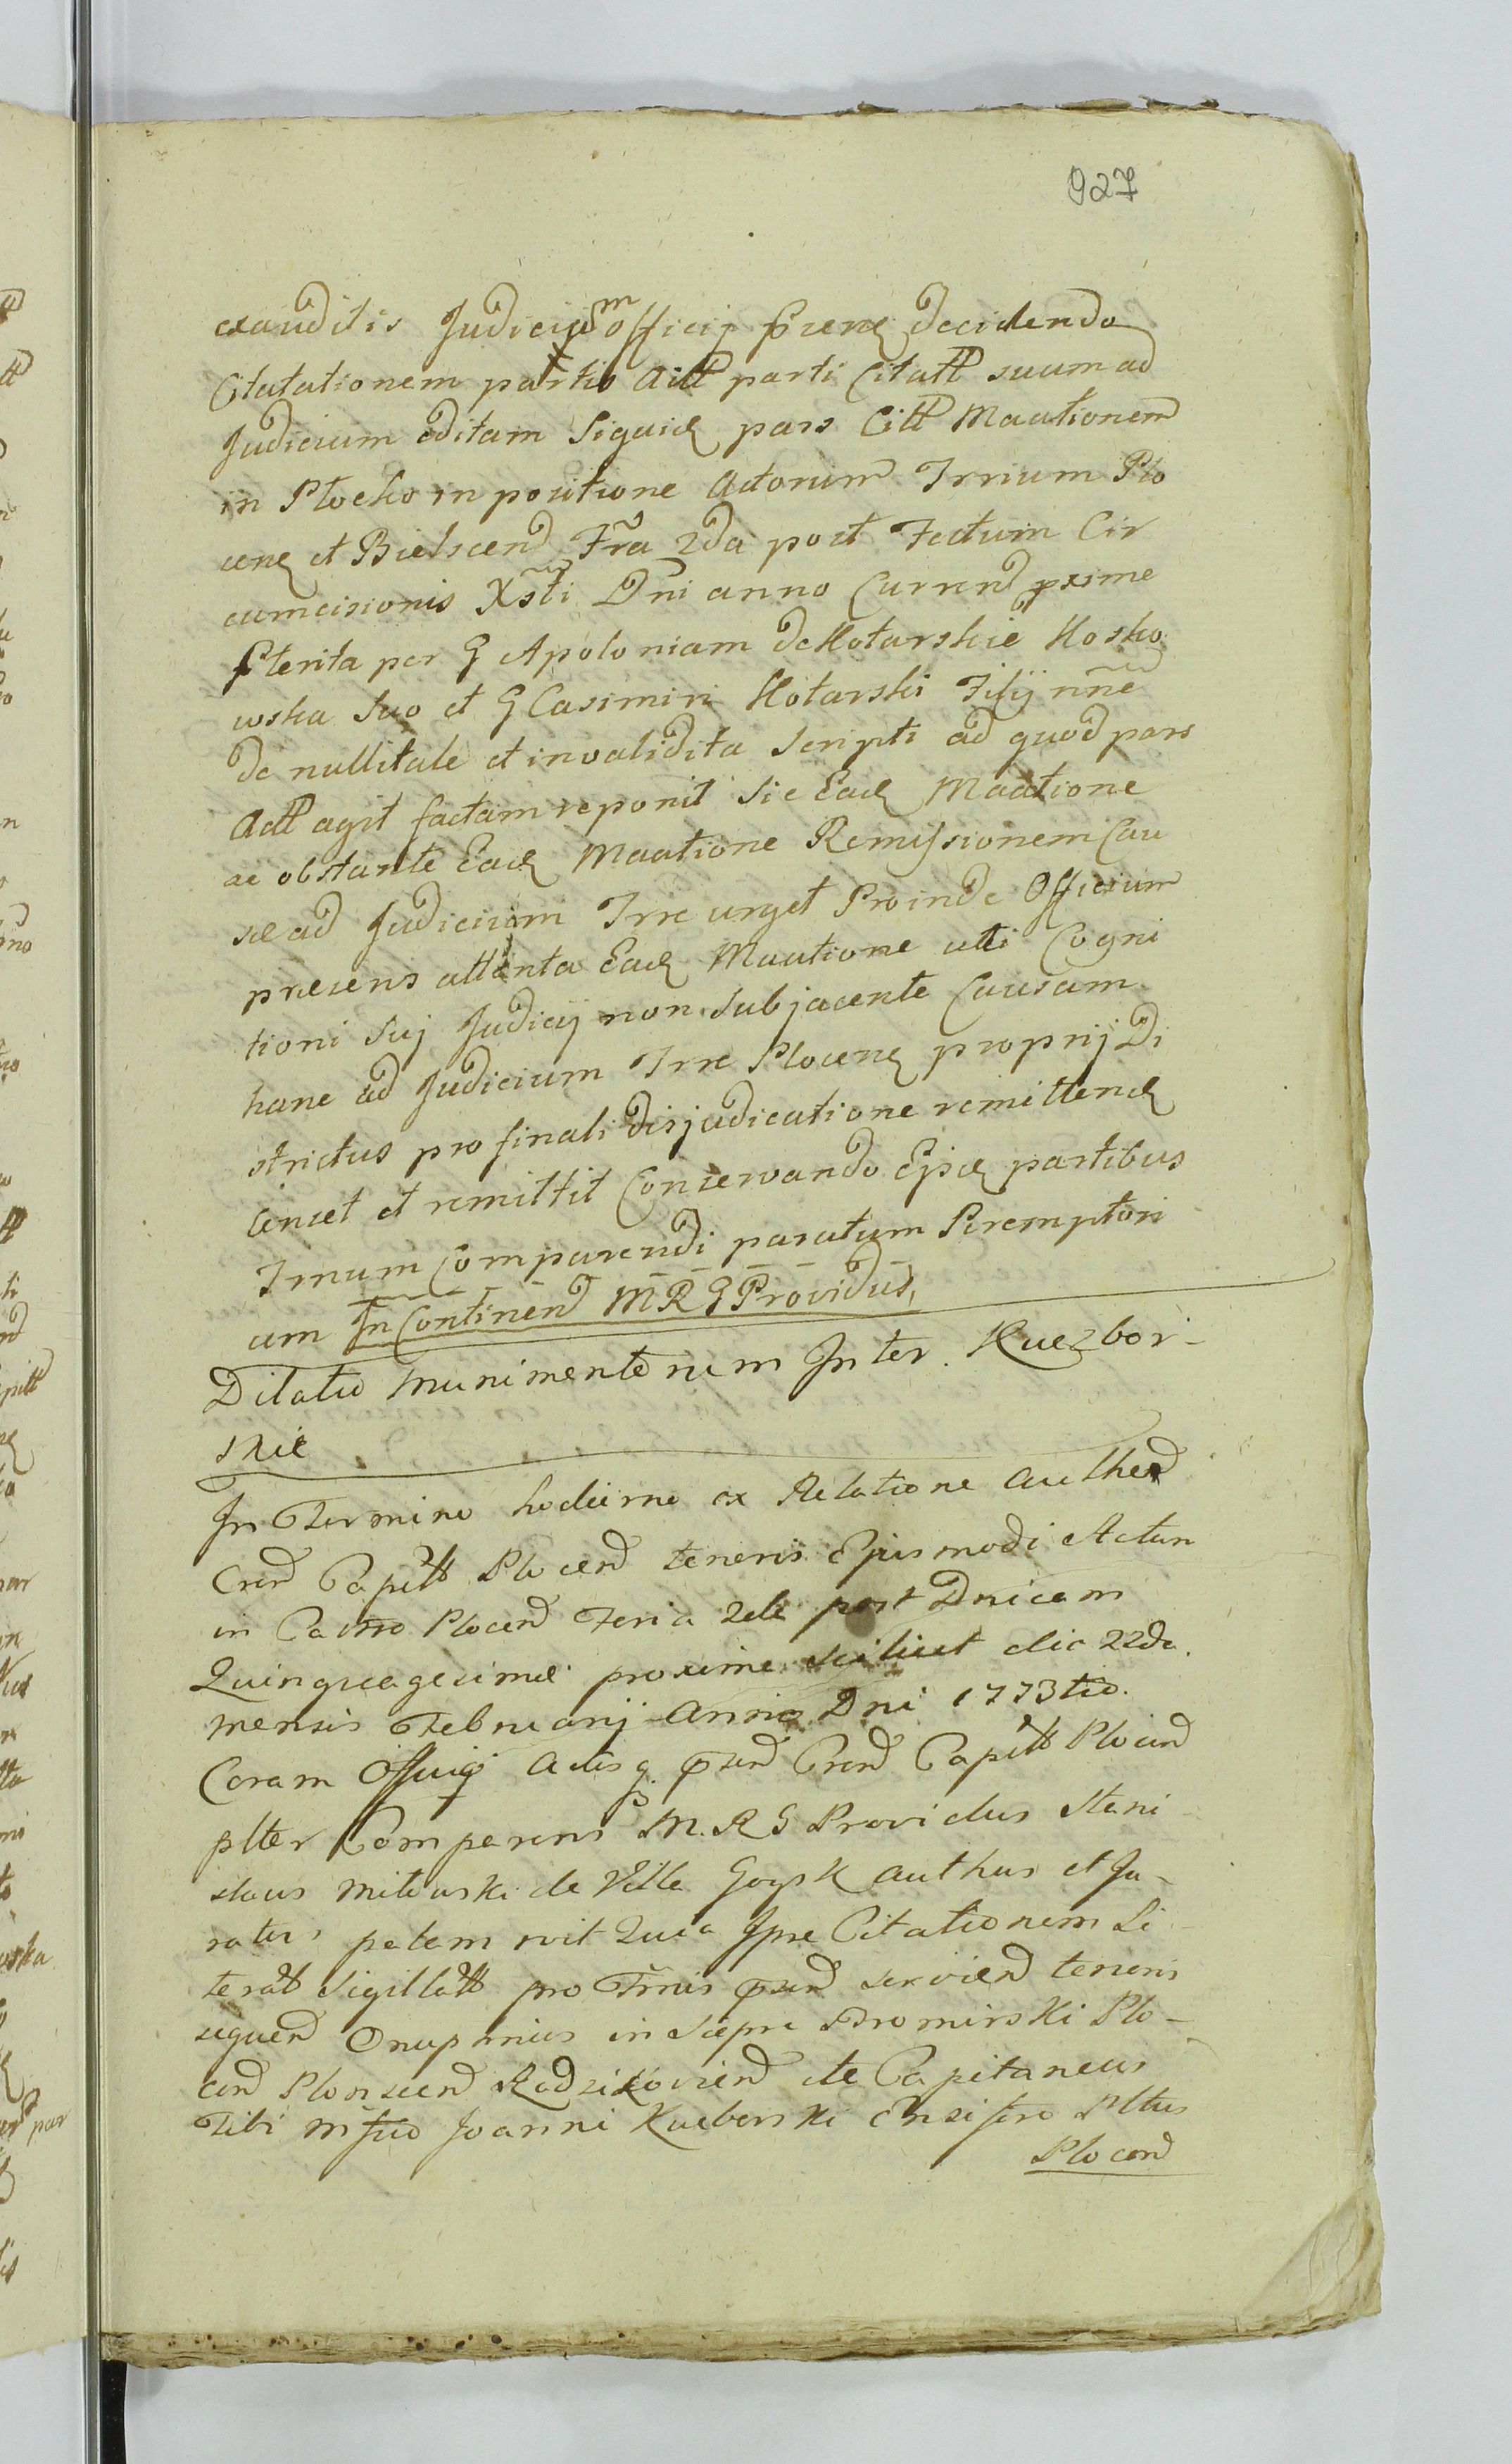 927
exauditis Judiciũm officij pzeń decidendo
Citatationem partis Actt parti Citatt suum ad
Judicium editam Siquid pars Citt Maationem
in Plocko in positione Actorum Trrium Plo
cen et Bielscen Fra 2da post Festum Cir
cumcisionis Xsti Dni anno Curren pxime
pterita per G Apoloniam de Kotarskie Kosko
wska suo et G Casimiri Kotarski Filij nñe
de nullitate et invalidita scripti ad quod pars
Actt agit factam reponit sic Ead Maatione
ac obstante Ead Maatione Remissionem Cau
sae ad Judicium Trre urget Proinde Officium
presens attenta Ead Maatione uti Cogni
tioni Suj Judicij non subjacente Causam
hanc ad Judicium Trre Plocen proprij Di
strictus pro finali disjudicatione remittend
Censet et remittit Conservando Ejsd partibus
Trnum Comparendi paratum Peremptori
um In Continen M R G Providus,
Dilatio munimentorum Inter Kuczbor-
skie
In Termino hodierno ex Relatione authen
Cren Capitt Plocen tenoris Ejusmodi Actum
in Castro Plocen Feria 2da post Dnicam
Quinquagesimae proxima scilicet die 22da.
mensis Februarij Anno Dni 1773tio.
Coram Officio Actisq. psen Cren Capitt Plocen
plter Comparens M. R G Providus Stani
slaus Milewski de Villa Gozsk authus et Ju-
ratus, patem reit Quia Ipse Citationem Li-
teratt Sigillatt pro Trnis psen servien tenoris
sequen Onuphrius in Siepre Bromirski Plo-
cen Plonscen Radzikovien etc Capitaneus
Tibi Mfico Joanni Kuczborski Ensifero Pltus
Plocen